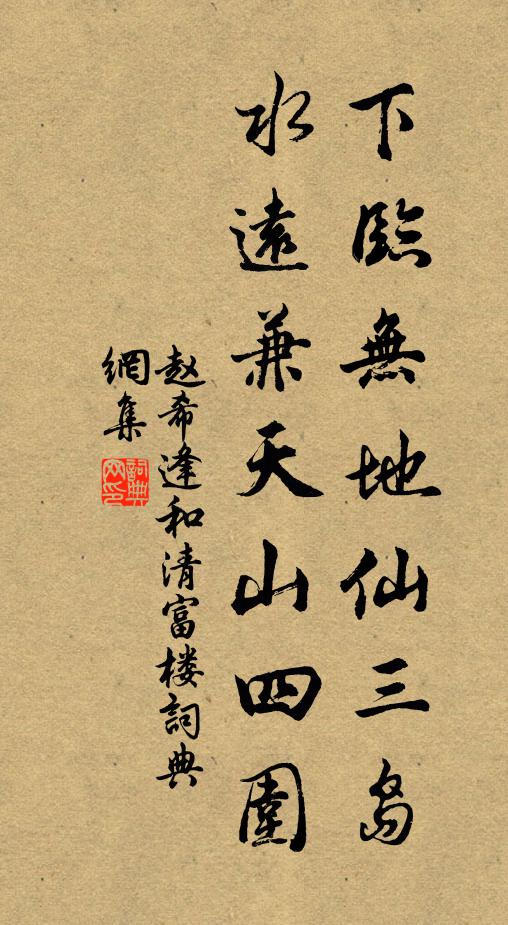 下臨無地仙三島
水遠兼天山四圍
赵希逢和清富楼詞典
網集
詞典
网印